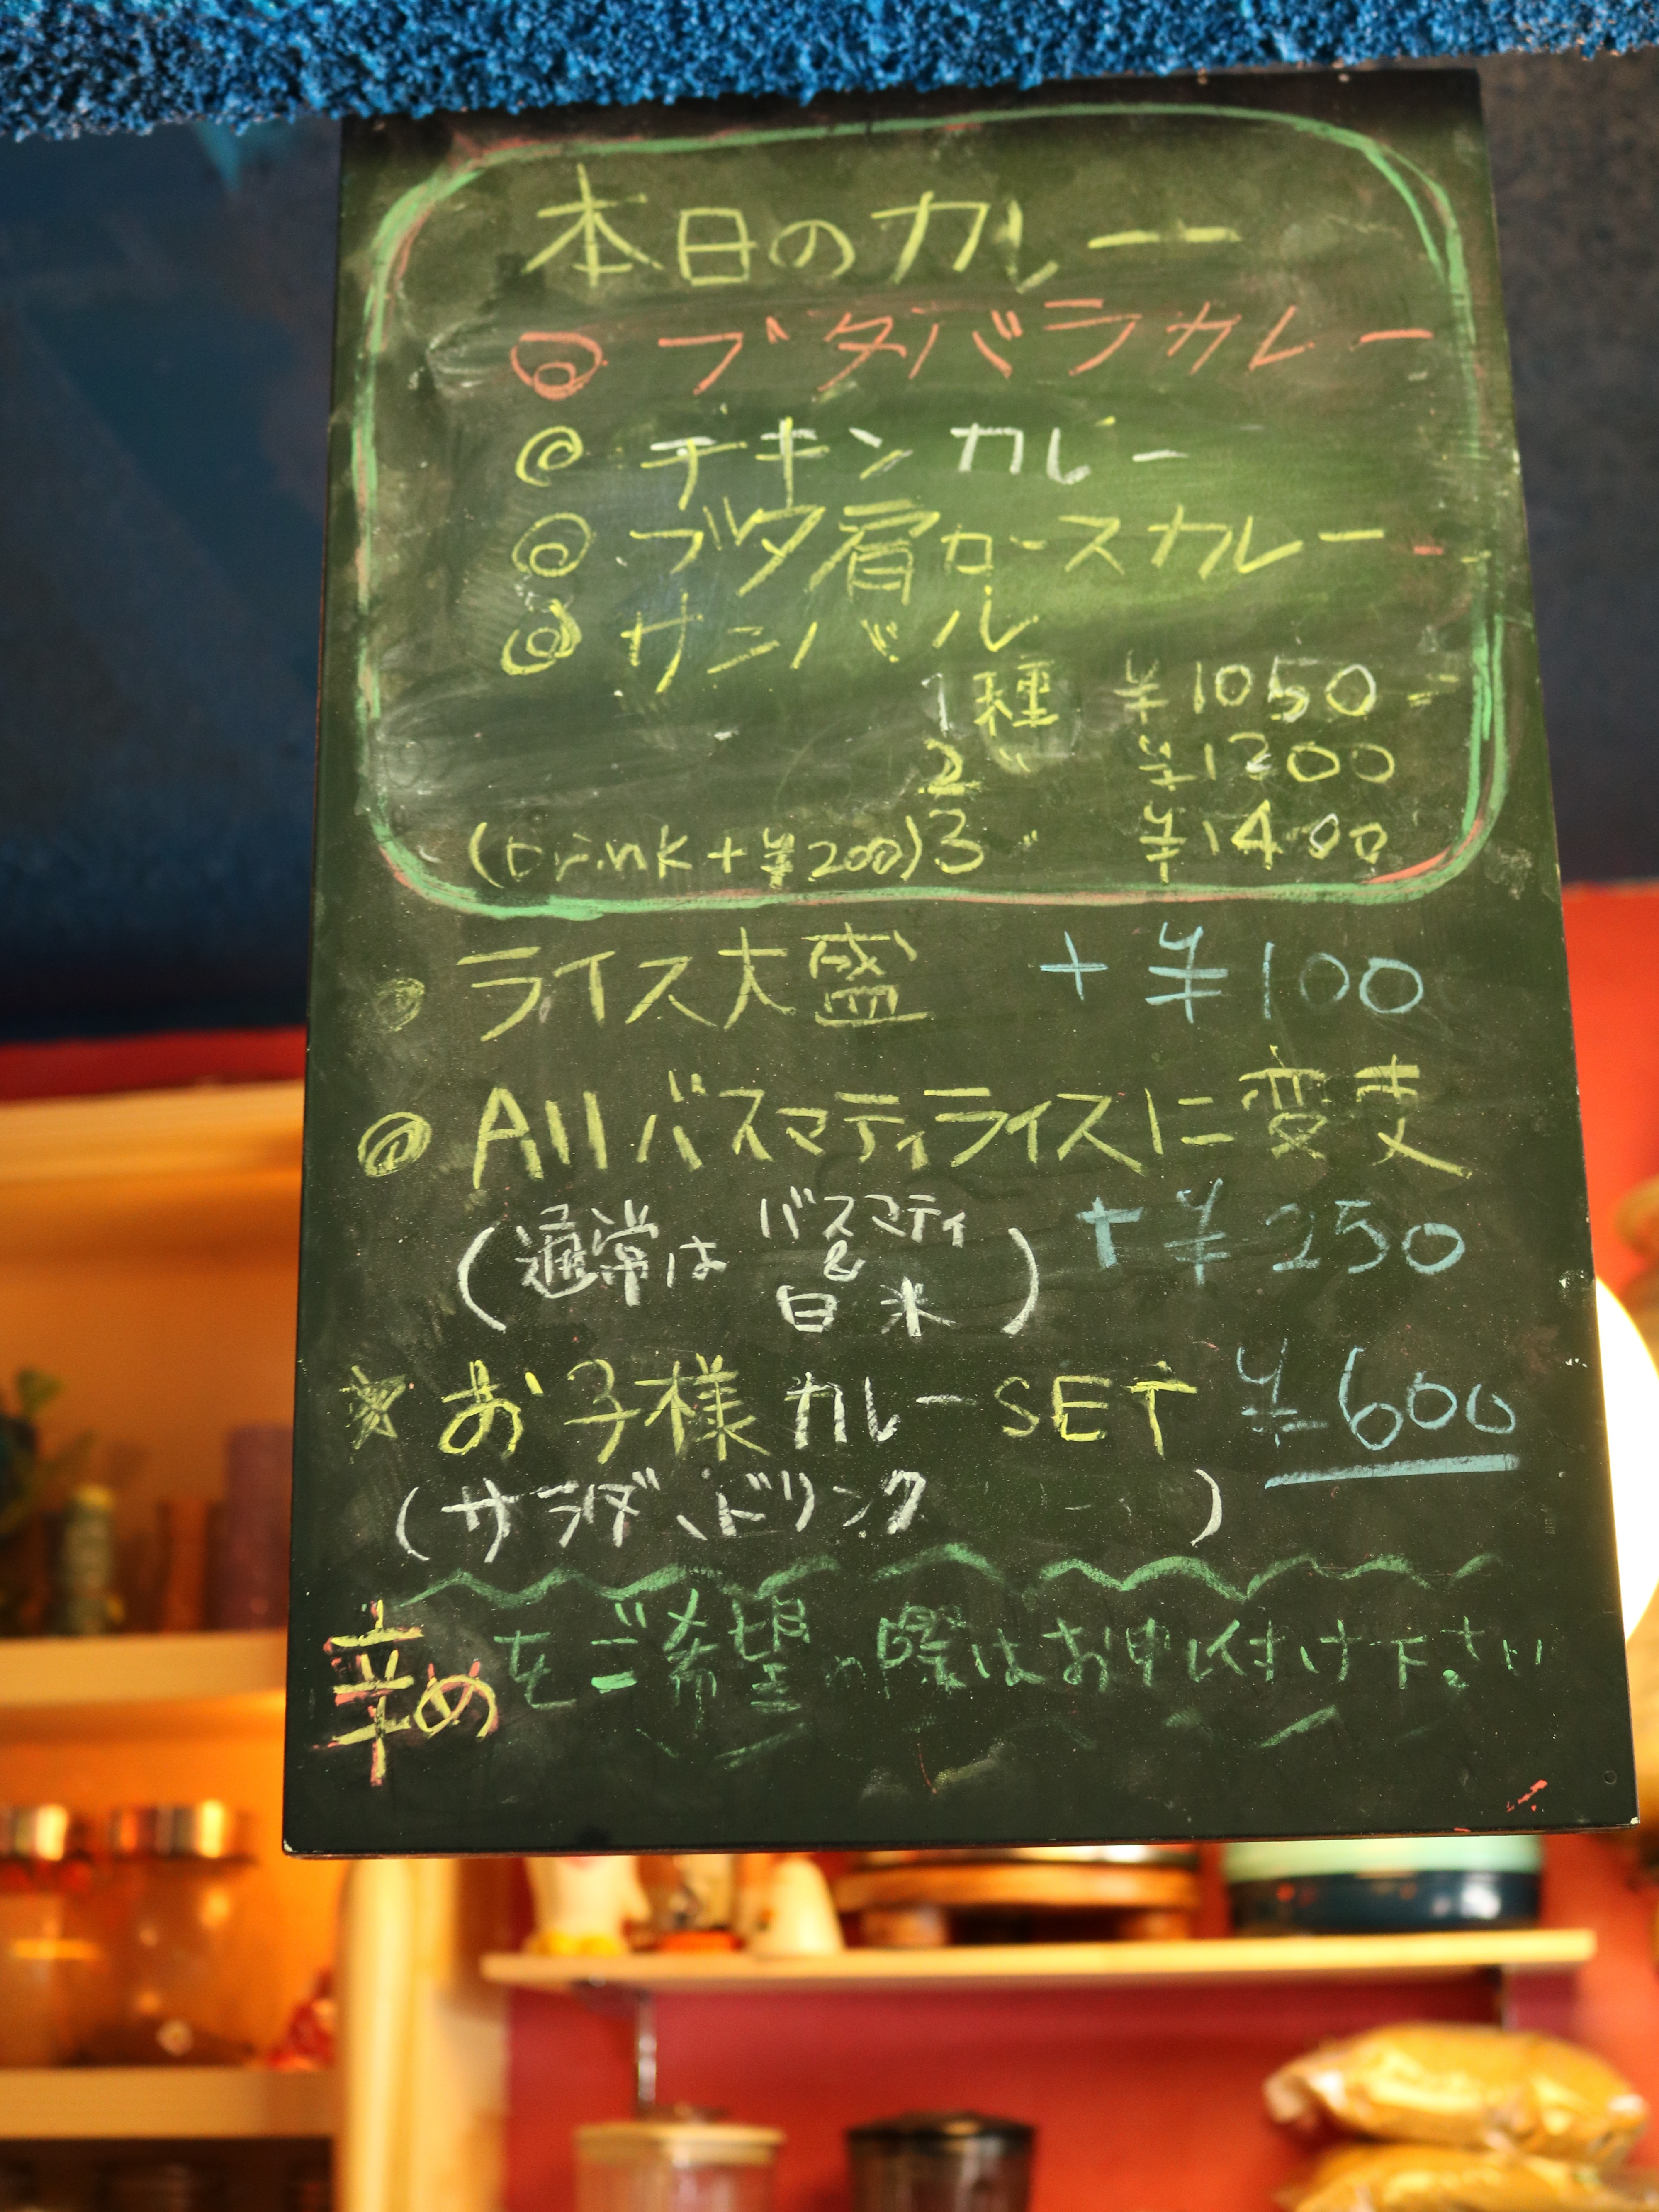 本日のカレー
◎ ブタバラカレー
◎ チキンカレー
◎ ブタ肩ロースカレー
◎ サンバル
1種 ¥1050
2〃 ¥1200
(Drink+¥200) 3〃 ¥1400
◎ ライス大盛 +¥100
◎ Allバスマティライスに変更
(通常は バスマティ & 白米) +¥250
☆ お子様カレーSET ¥600
(サラダ、ドリンク )
辛めをご希望の際はお申し付け下さい